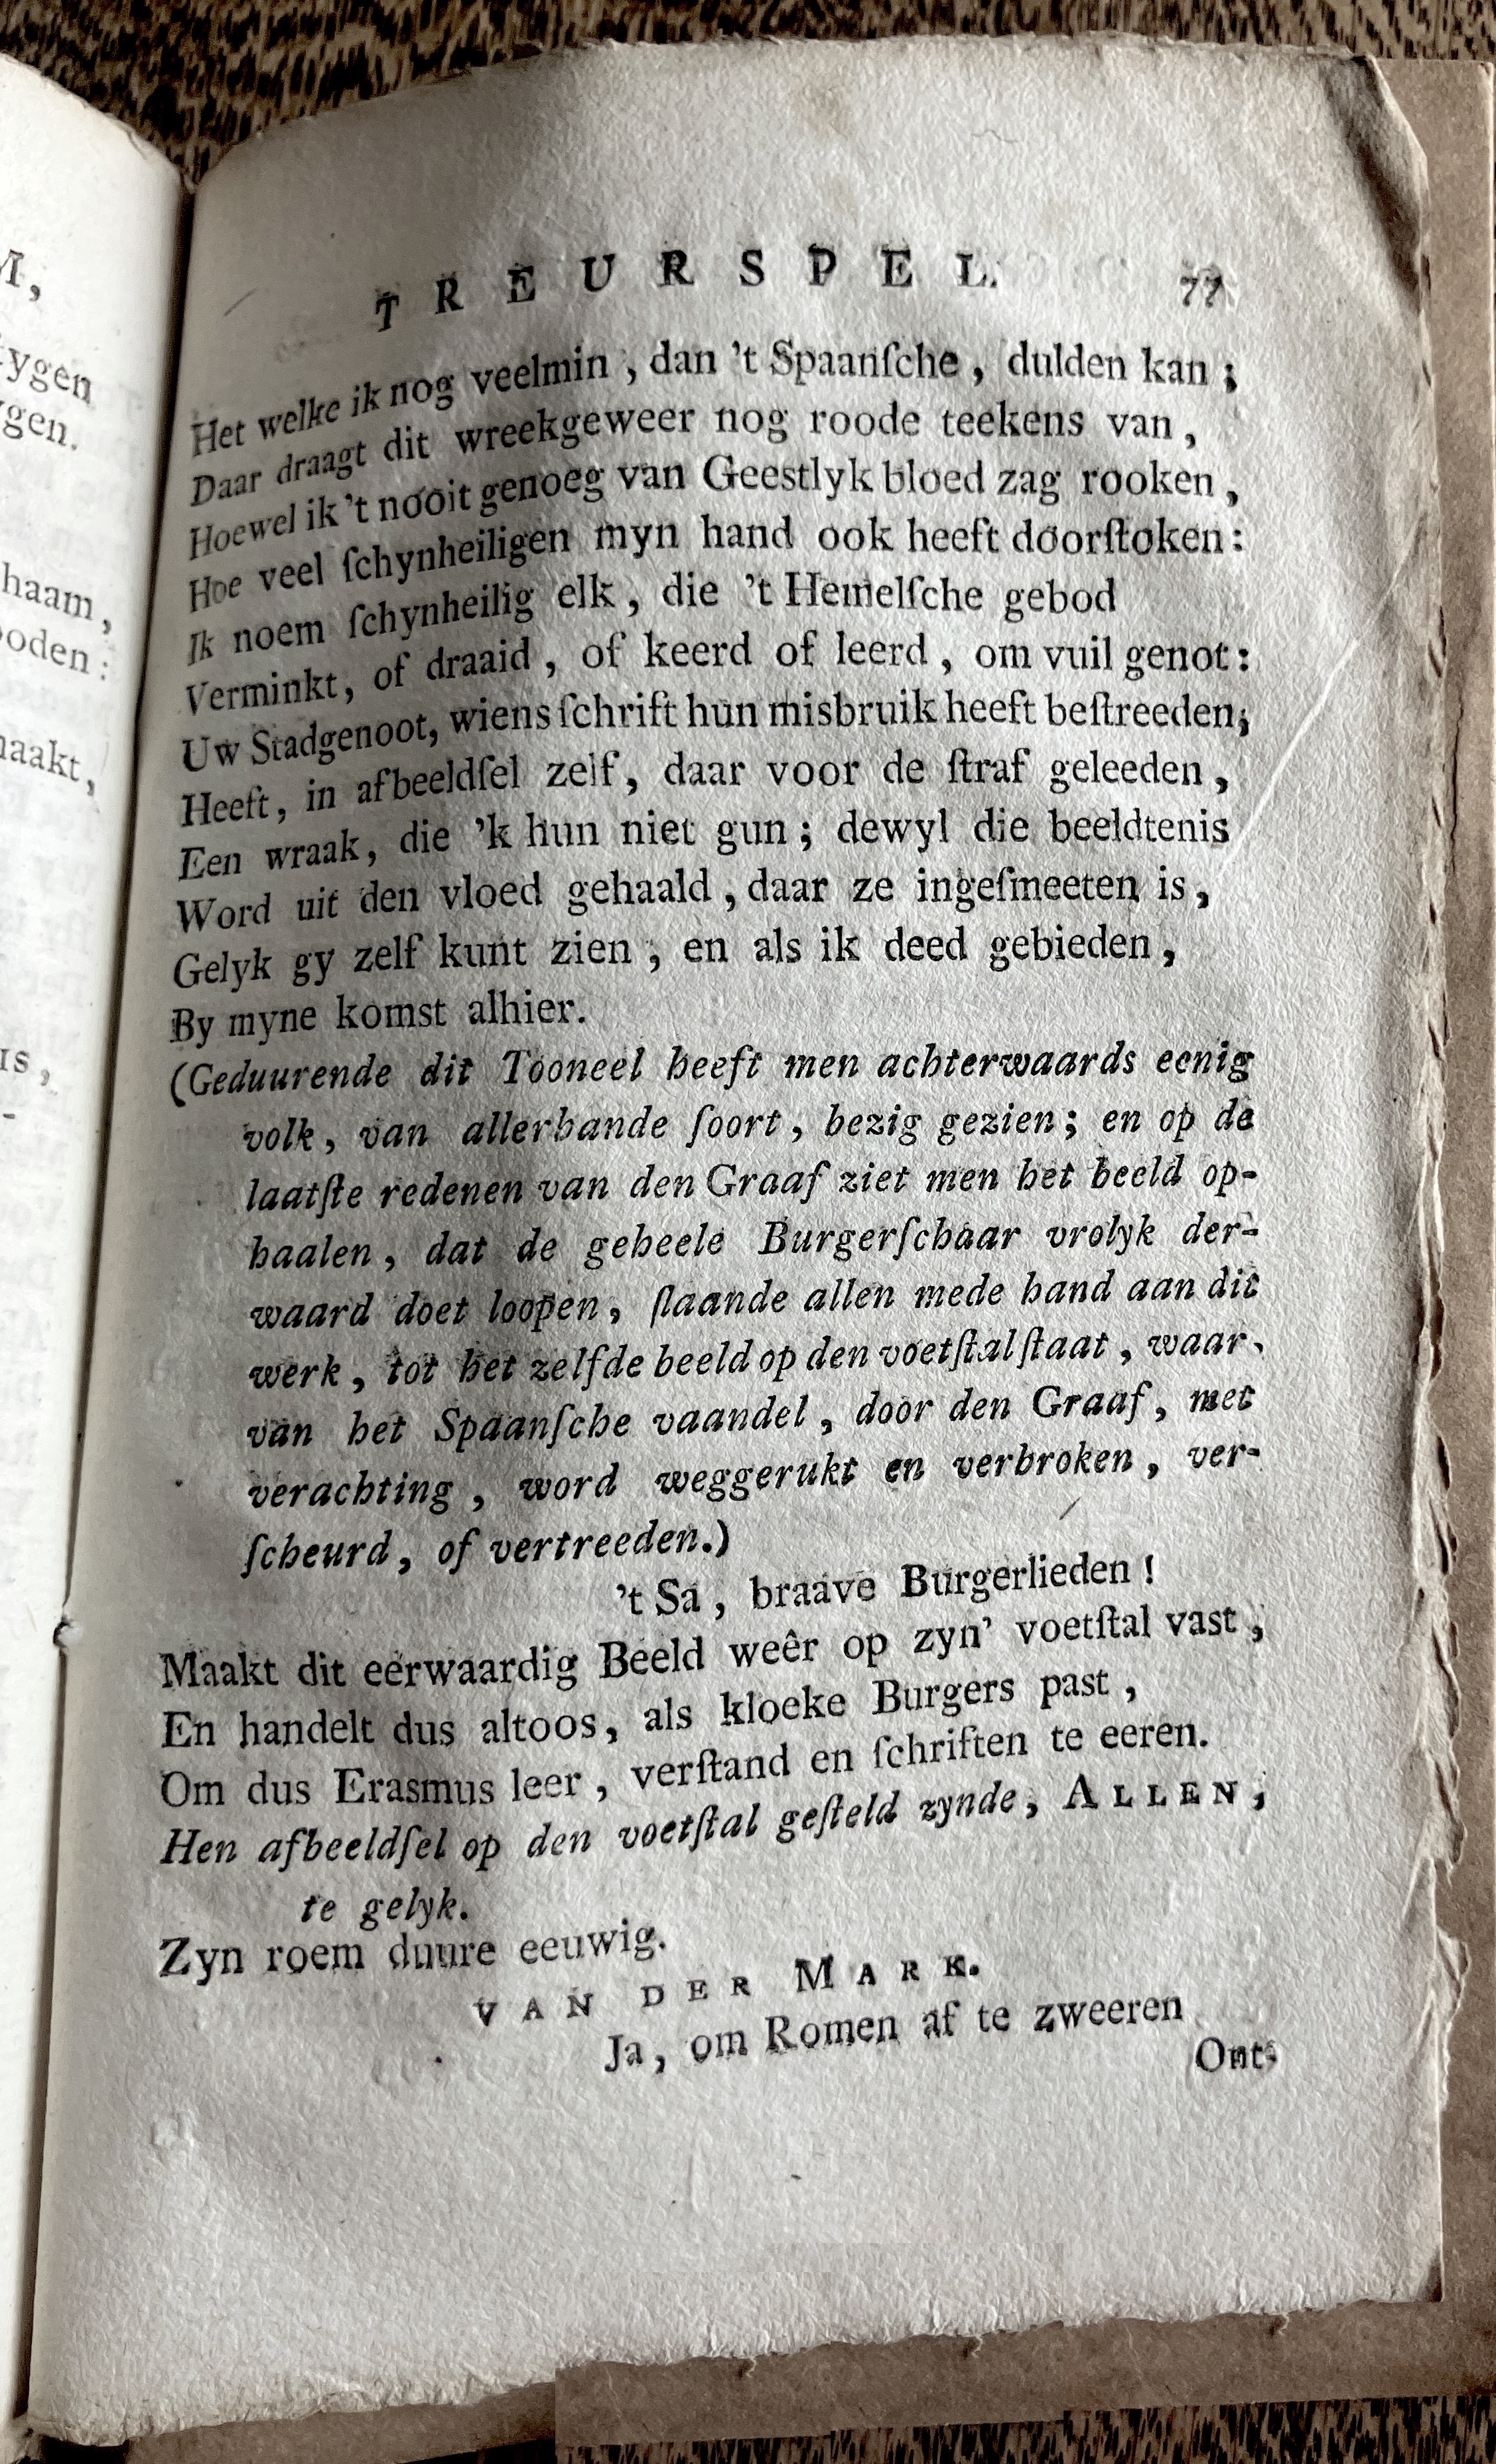 M,
ygen
gen.
haam,
oden:
naakt,
IS,
-
TREURSPEL. 77
Het welke ik nog veelmin, dan 't Spaanſche, dulden kan;
Daar draagt dit wreekgeweer nog roode teekens van,
Hoewel ik 't nooit genoeg van Geestlyk bloed zag rooken,
Hoe veel ſchynheiligen myn hand ook heeft doorſtoken:
Ik noem ſchynheilig elk, die 't Hemelſche gebod
Verminkt, of draaid, of keerd of leerd, om vuil genot:
Uw Stadgenoot, wiens ſchrift hun misbruik heeft beſtreeden;
Heeft, in afbeeldſel zelf, daar voor de ſtraf geleeden,
Een wraak, die 'k hun niet gun; dewyl die beeldtenis
Word uit den vloed gehaald, daar ze ingeſmeeten is,
Gelyk gy zelf kunt zien, en als ik deed gebieden,
By myne komst alhier.
(Geduurende dit Tooneel heeft men achterwaards eenig
volk, van allerhande ſoort, bezig gezien; en op de
laatſte redenen van den Graaf ziet men het beeld op-
haalen, dat de geheele Burgerſchaar vrolyk der-
waard doet loopen, ſlaande allen mede hand aan dit
werk, tot het zelfde beeld op den voetſtal ſtaat, waar-
van het Spaanſche vaandel, door den Graaf, met
verachting, word weggerukt en verbroken, ver-
ſcheurd, of vertreeden.)
't Sa, braave Burgerlieden!
Maakt dit eerwaardig Beeld weêr op zyn' voetſtal vast,
En handelt dus altoos, als kloeke Burgers past,
Om dus Erasmus leer, verſtand en ſchriften te eeren.
Hen afbeeldſel op den voetſtal geſteld zynde, ALLEN,
te gelyk.
Zyn roem duure eeuwig.
VAN DER MARK.
Ja, om Romen af te zweeren
Ont-